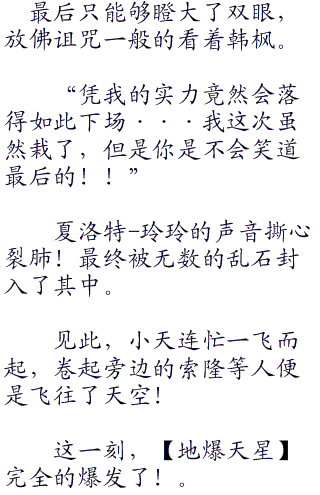 最后只能够瞪大了双眼，
放佛诅咒一般的看着韩枫。
“凭我的实力竟然会落
得如此下场···我这次虽
然栽了，但是你是不会笑道
最后的！！”
夏洛特-玲玲的声音撕心
裂肺！最终被无数的乱石封
入了其中。
见此，小天连忙一飞而
起，卷起旁边的索隆等人便
是飞往了天空！
这一刻，【地爆天星】
完全的爆发了！。